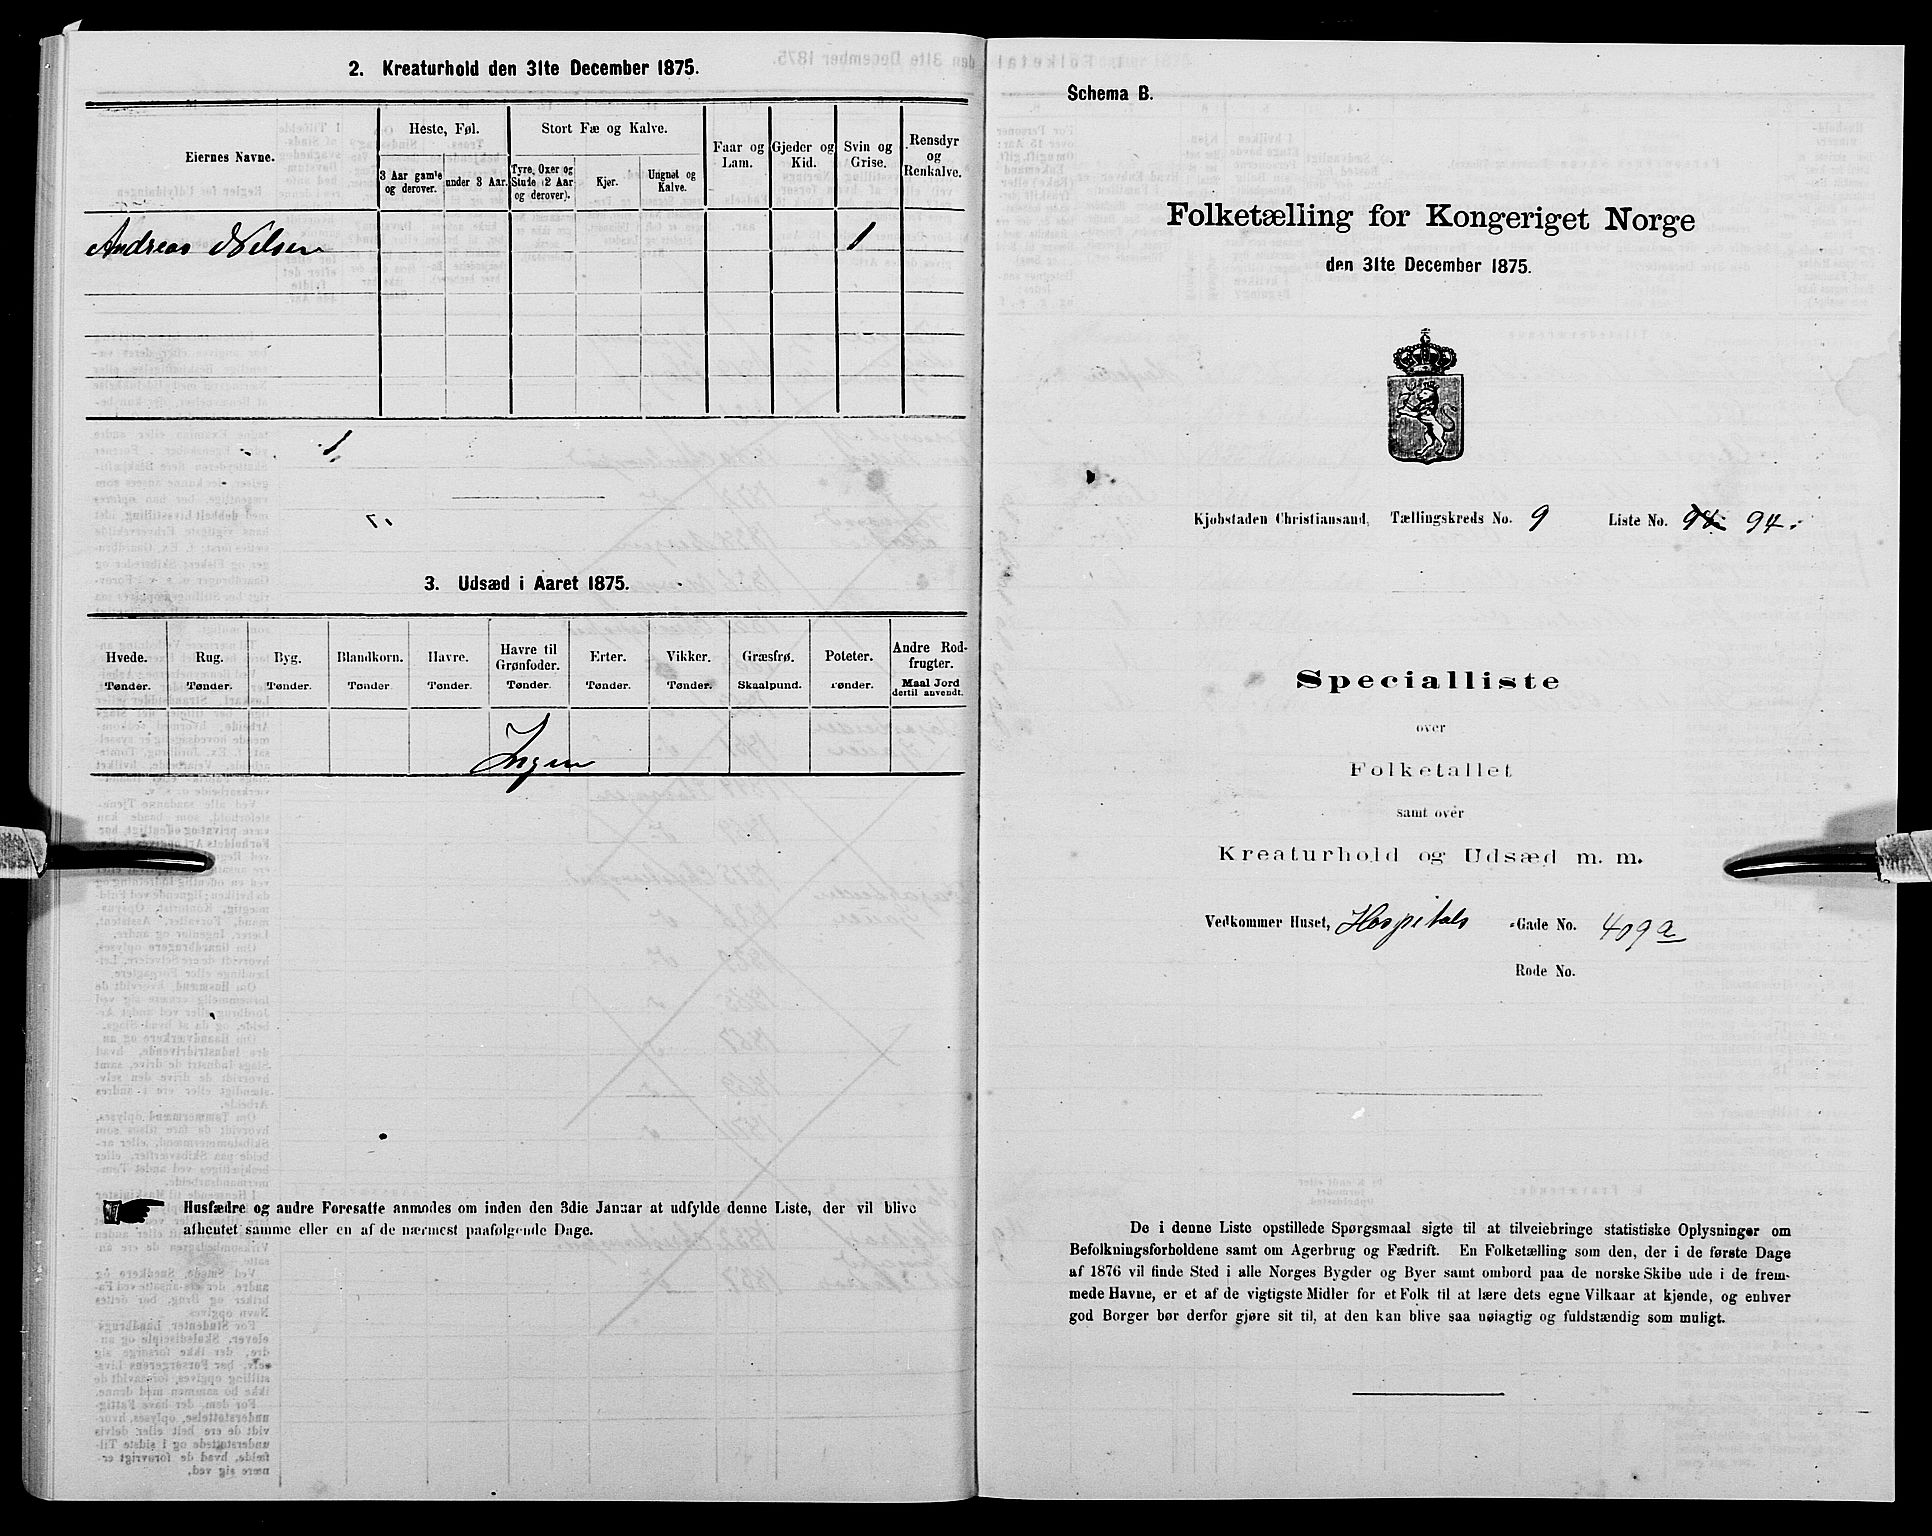 2. Kreaturhold den 31te December 1875.
Eiernes Navne.
Heste, Føl.
3 Aar gamle og derover.
under 3 Aar.
Stort Fæ og Kalve.
Tyre, Oxer og Stude (2 Aar og derover).
Kjør.
Ungnøt og Kalve.
Faar og Lam.
Gjeder og Kid.
Svin og Grise.
Rensdyr og Renkalve.
Andreas Nilsen 1
1
3. Udsæd i Aaret 1875.
Hvede. Tønder.
Rug. Tønder.
Byg. Tønder.
Blandkorn. Tønder.
Havre. Tønder.
Havre til Grønfoder. Tønder.
Erter. Tønder.
Vikker. Tønder.
Græsfrø. Skaalpund.
Poteter. Tønder.
Andre Rodfrugter. Maal Jord dertil anvendt.
Ingen
Husfædre og andre Foresatte anmodes om inden den 3die Januar at udfylde denne Liste, der vil blive
afhentet samme eller en af de nærmest paafølgende Dage.
Schema B.
Folketælling for Kongeriget Norge
den 31te December 1875.
Kjøbstaden Christiansand, Tællingskreds No. 9 Liste No. 94.
Specialliste
over
Folketallet
samt over
Kreaturhold og Udsæd m. m.
Vedkommer Huset, Hospitals -Gade No. 409a
Rode No.
De i denne Liste opstillede Spørgsmaal sigte til at tilveiebringe statistiske Oplysninger om
Befolkningsforholdene samt om Agerbrug og Fædrift. En Folketælling som den, der i de første Dage
af 1876 vil finde Sted i alle Norges Bygder og Byer samt ombord paa de norske Skibe ude i de frem-
mede Havne, er et af de vigtigste Midler for et Folk til at lære dets egne Vilkaar at kjende, og enhver
god Borger bør derfor gjøre sit til, at den kan blive saa nøiagtig og fuldstændig som muligt.